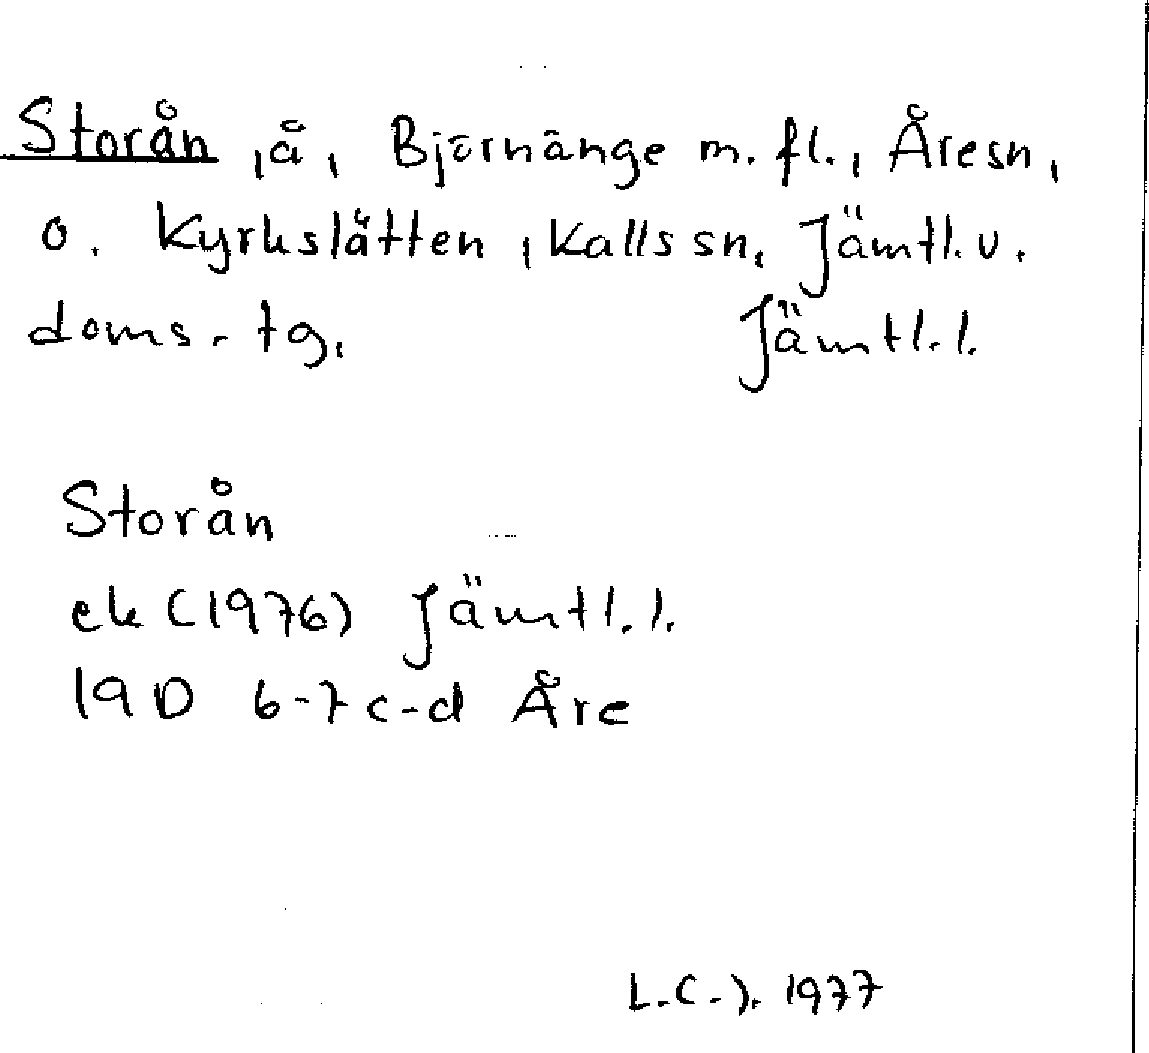 Storån, å, Björnänge m. fl., Åre sn,
o. Kyrkslätten, Kalls sn, Jämtl. v.
doms. tg. Jämtl. l.
Storån
ek (1976) Jämtl. l.
19 D 6-7 c-d Åre
L.C.J. 1977